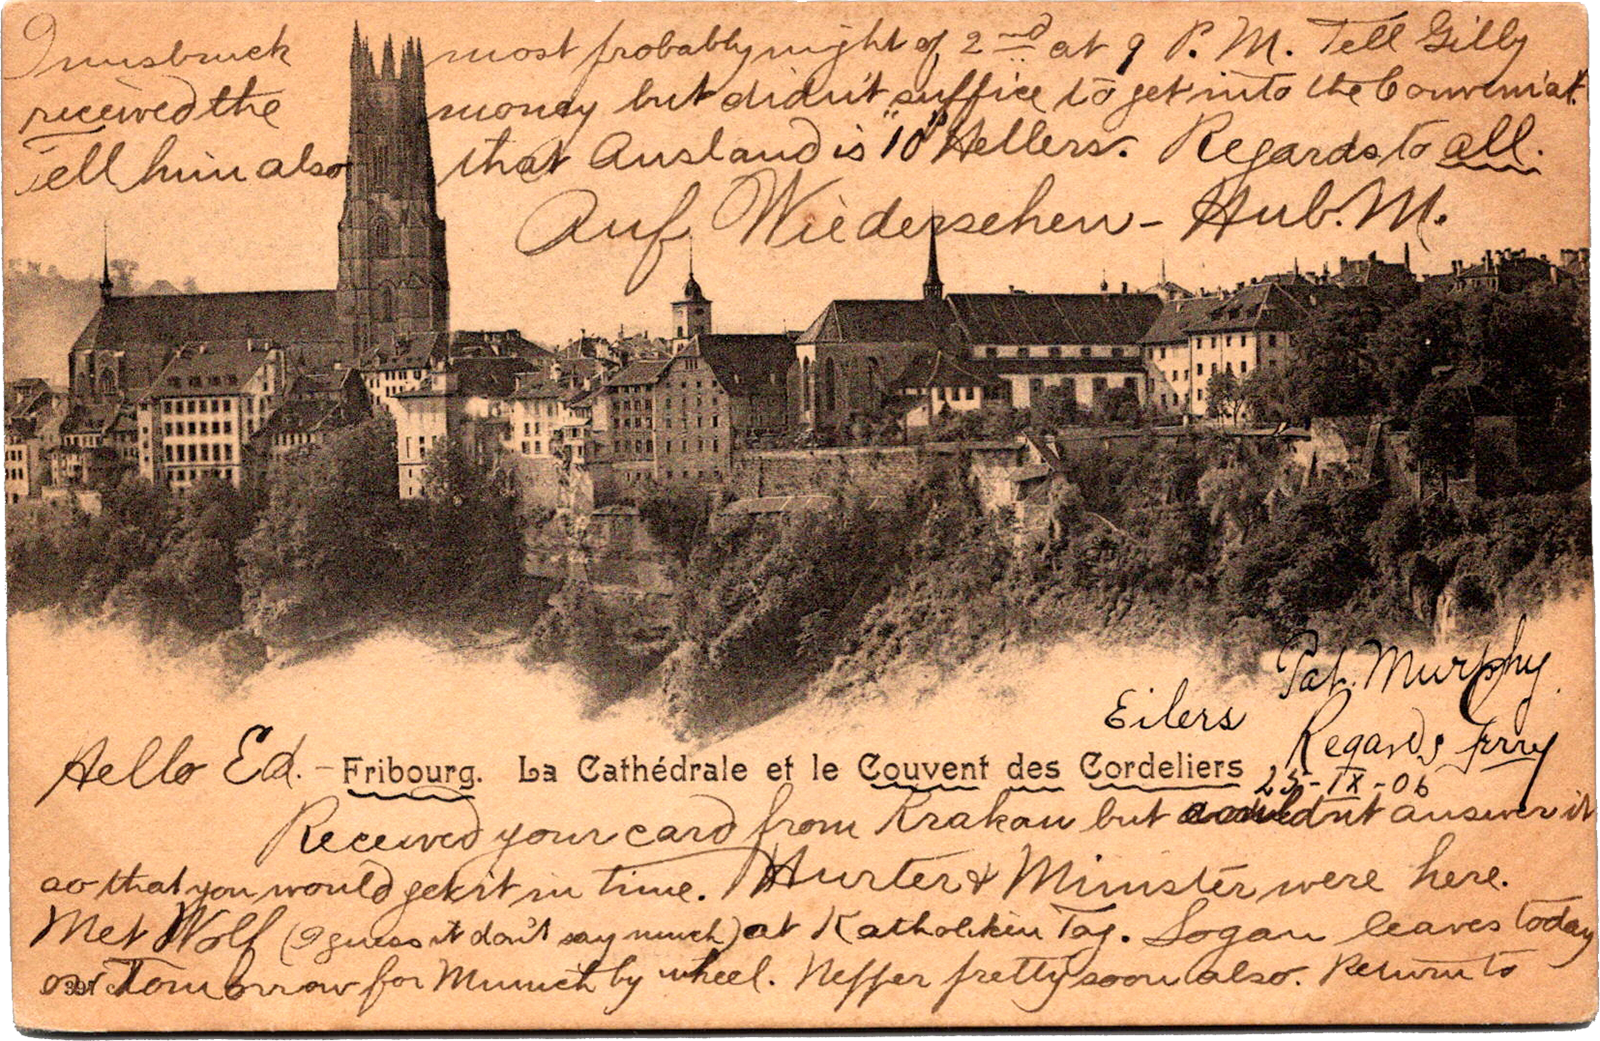 Innsbruck most probably night of 2nd at 9 P.M. Tell Gilly
received the money but didn't suffice to get into the Conviniat.
Tell him also that Ausland is "10" Hellers. Regards to all.
Auf Wiedersehen - Hub. M.
Pat. Murphy
Eilers
Regards Jerry
Hello Ed. - Fribourg. La Cathédrale et le Couvent des Cordeliers
25-IX-06
Received your card from Krakau but couldnt answer it
so that you would get it in time. Hurter & Minster were here.
Met Wolf (I guess it don't say much) at Katholiken Tag. Logan leaves today
or Tomorrow for Munich by wheel. Neffer pretty soon also. Return to